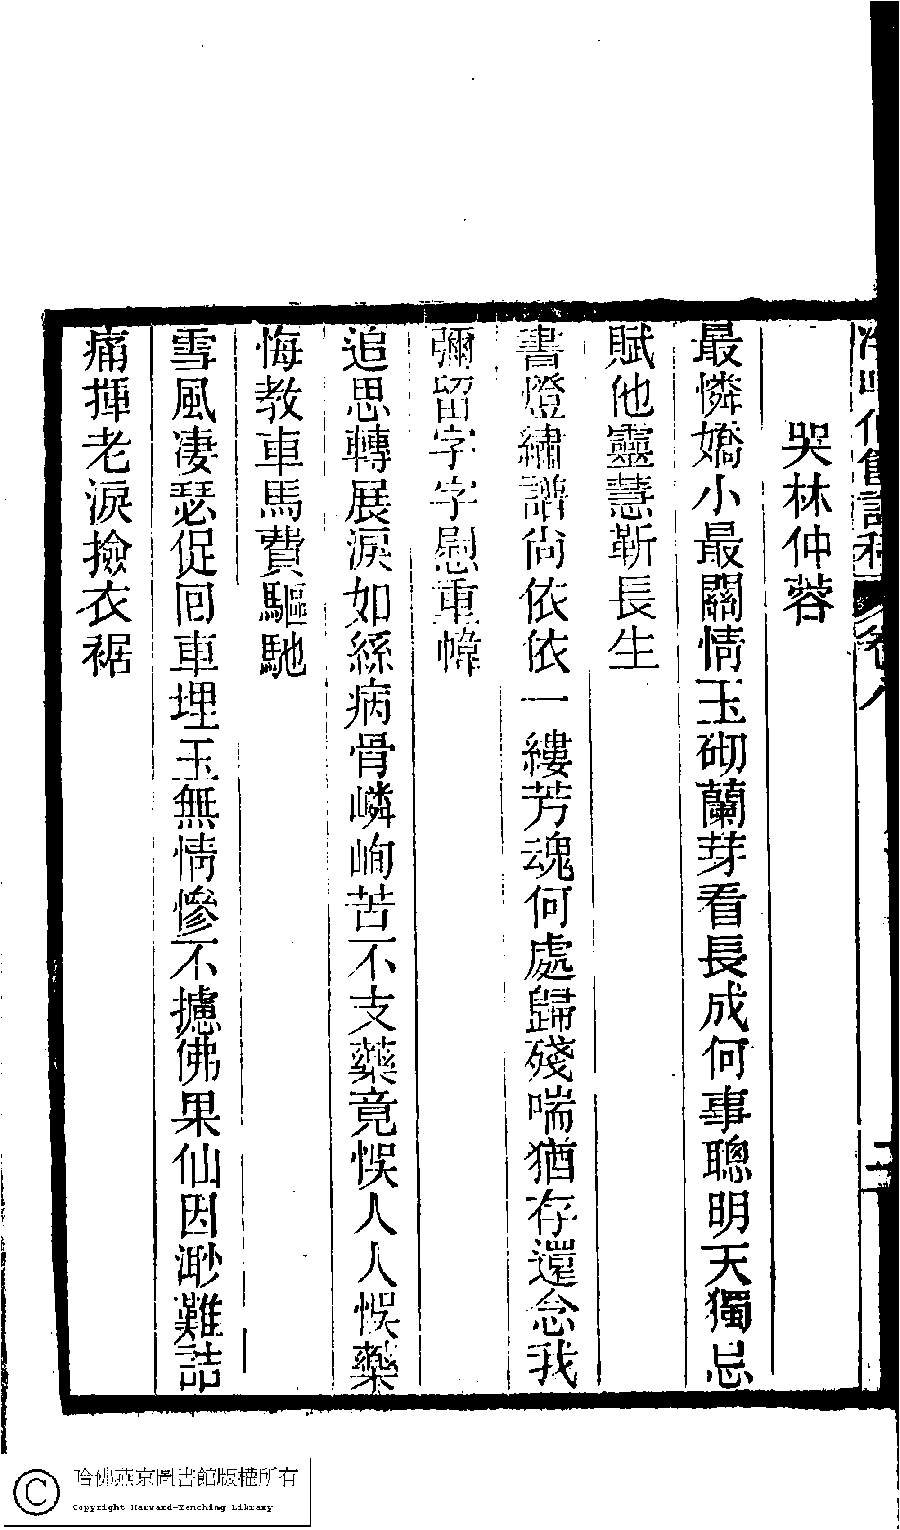 哭林仲蓉
最憐嬌小最關情玉砌蘭芽看長成何事聰明天獨忌
賦他靈慧靳長生
書燈繡譜尙依依一縷芳魂何處歸殘喘猶存還念我
彌留字字慰重幃
追思轉展淚如絲病骨嶙峋苦不支藥竟悞人人悞藥
悔教車馬費驅馳
雪風凄瑟促囘車埋玉無情慘不攄佛果仙因渺難詰
痛揮老淚撿衣裾
哈佛燕京圖書館版權所有
Copyright Harvard-Yenching Library